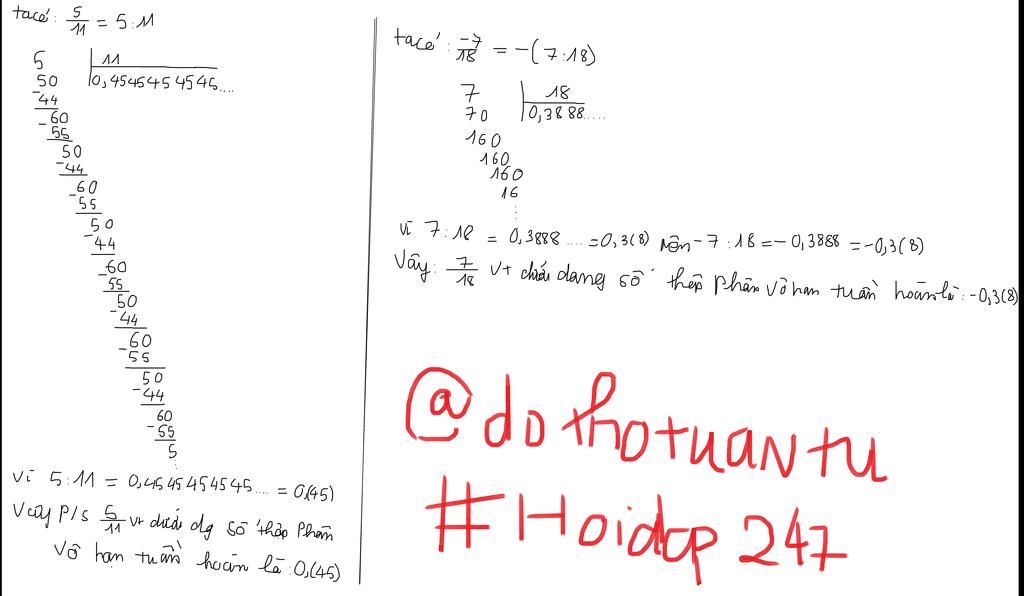 ta có: 5/11 = 5:11
5 | 11
50 | 0,45454545454545....
-44
-60
55
50
-44
-60
55
50
-44
-60
55
50
-44
60
-55
50
-44
60
-55
5
vì 5:11 = 0,4545454545.... = 0,(45)
Vậy P/s 5/11 vt dưới dg số thập phân
vô hạn tuần hoàn là: 0,(45)
ta có: -7/18 = -(7:18)
7 | 18
70 | 0,3888.....
160
160
160
16
vì 7:18 = 0,3888.... = 0,3(8) nên -7:18 = -0,3888 = -0,3(8)
Vậy: 7/18 vt dưới dạng số thập phân vô hạn tuần hoàn là: -0,3(8)
@dothotuantu
#Hoidap247